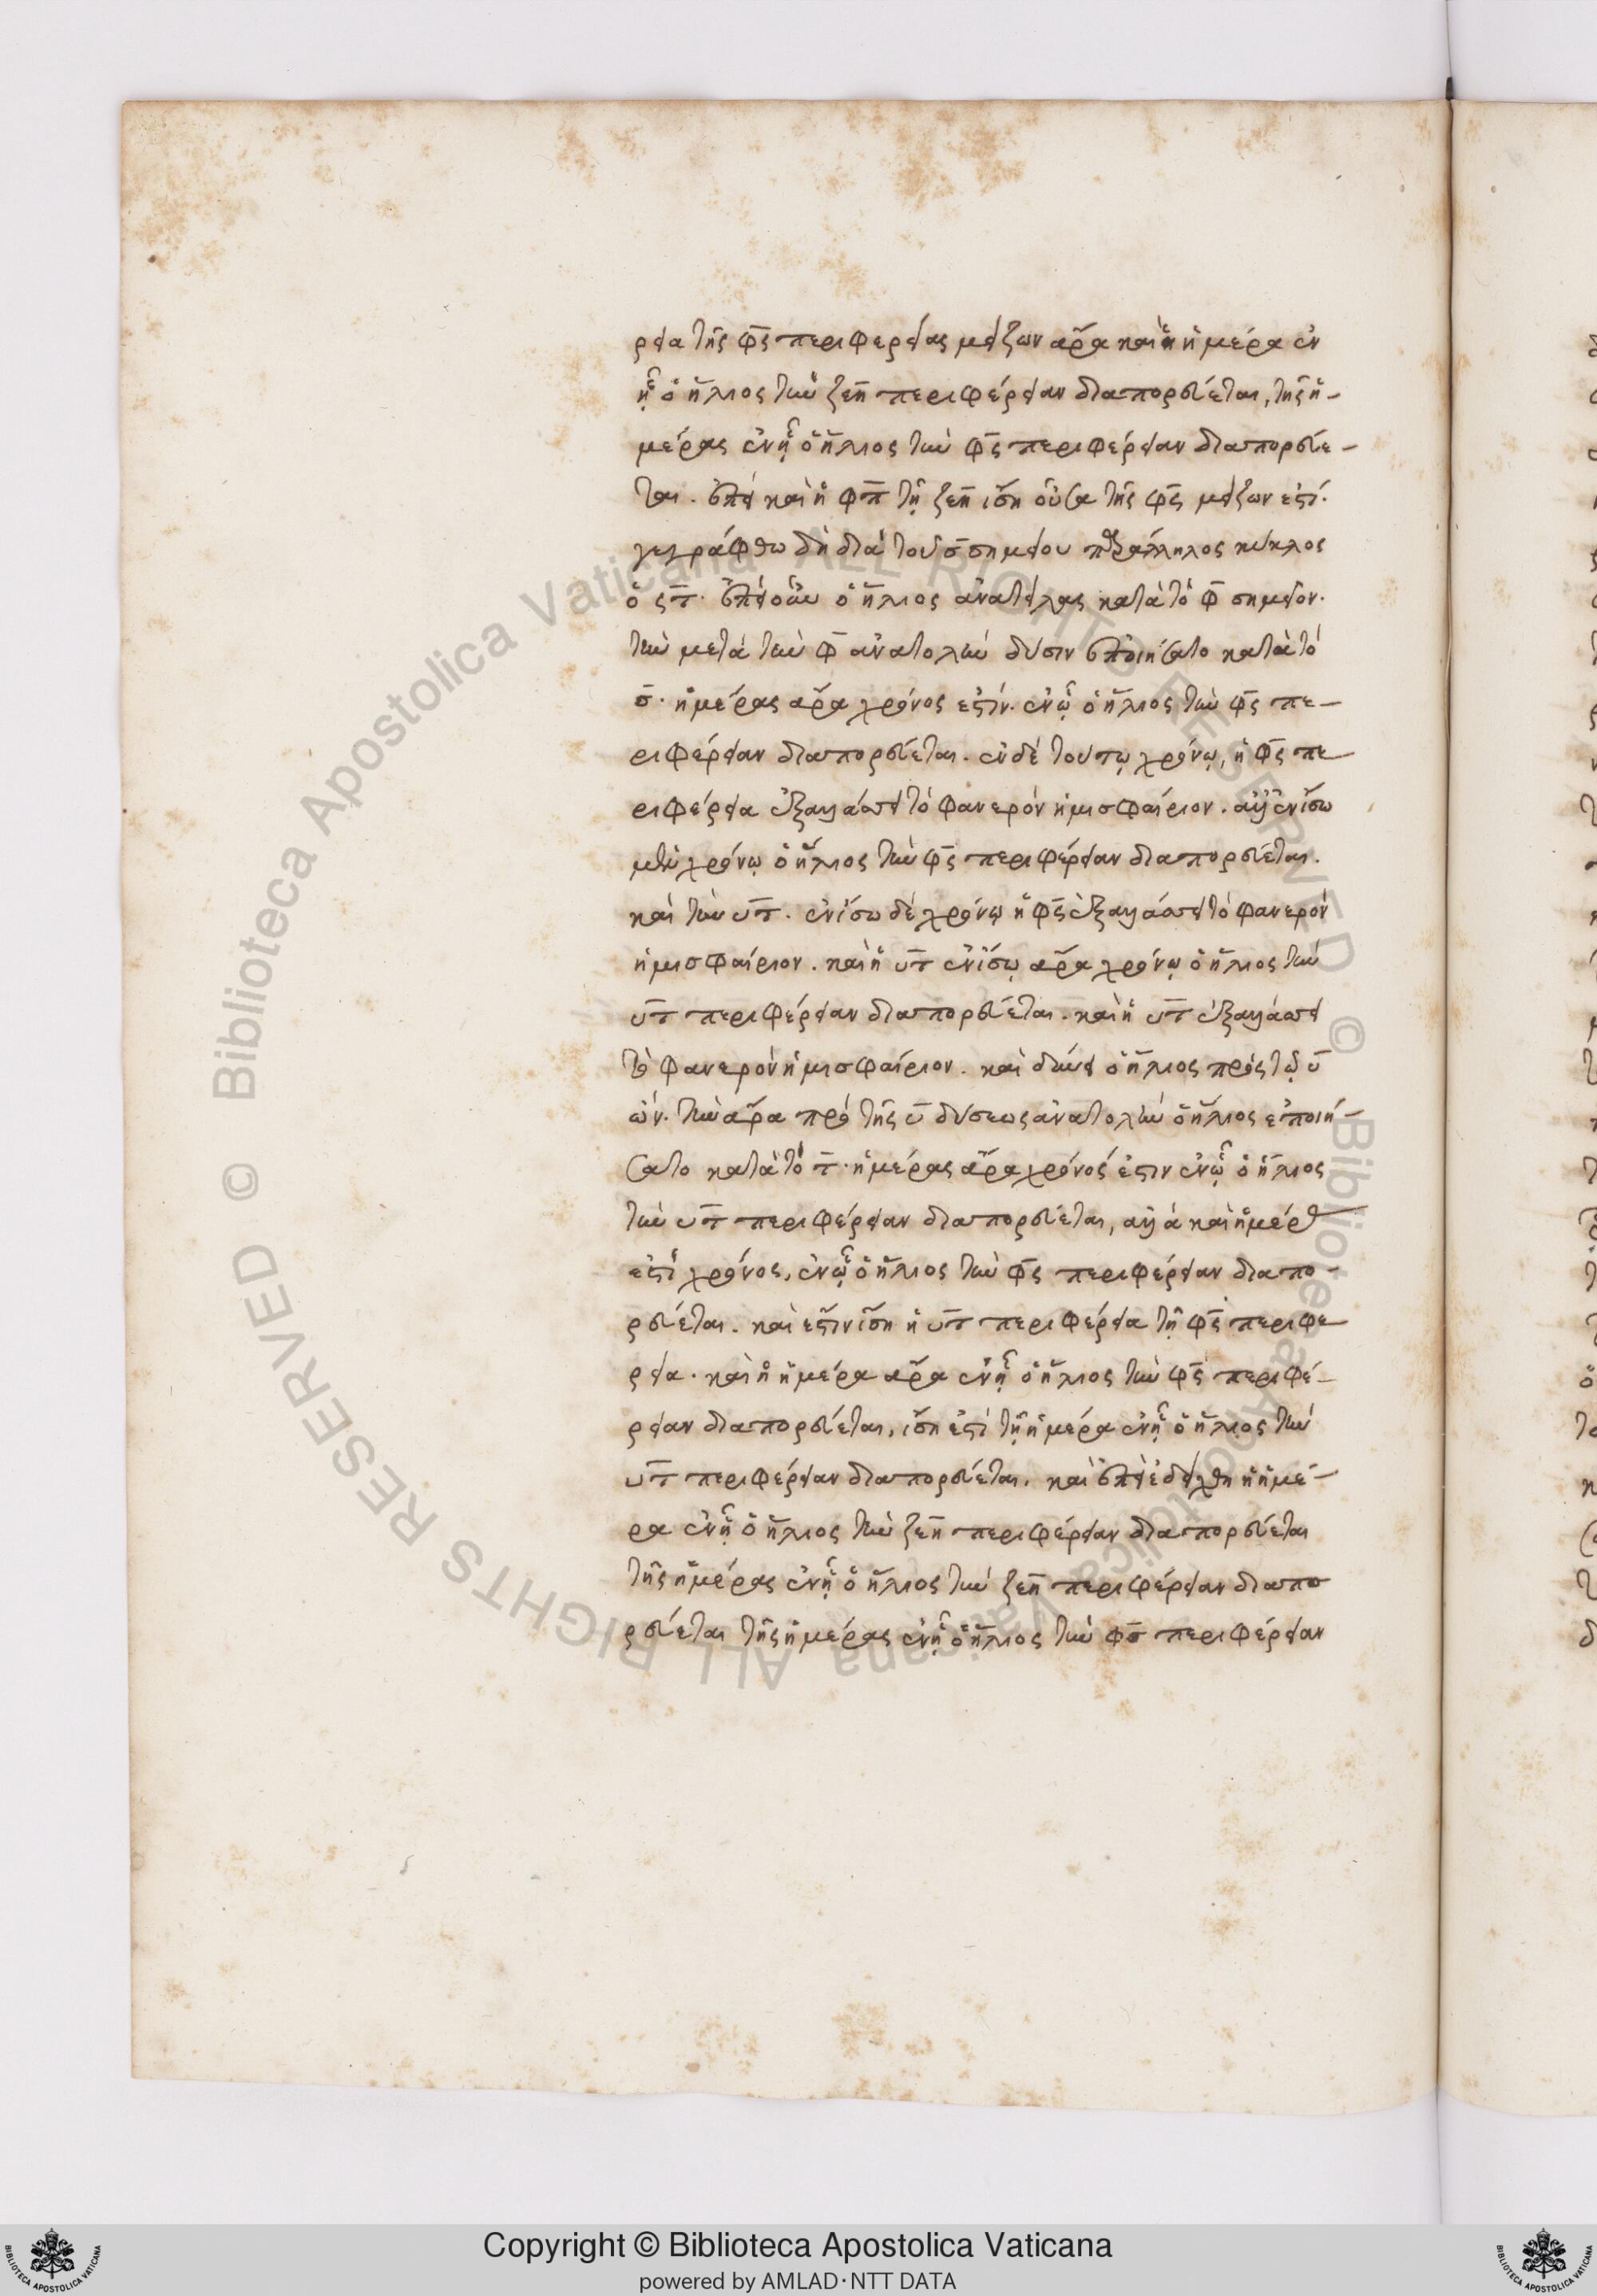 ρεια τῆς φς περιφερείας μείζων ἄρα καὶ ἡ ἡμέρα ἐν
ᾗ ὁ ἥλιος τὴν ζεπ περιφέρειαν διαπορεύεται, τῆς ἡ-
μέρας ἐν ᾗ ὁ ἥλιος τὴν φς περιφέρειαν διαπορεύε-
ται. ἐπεὶ καὶ ἡ φπ τῇ ζεπ ἴση οὖσα τῆς φς μείζων ἐστί.
γεγράφθω δὴ διὰ τοῦ σ σημείου παράλληλος κύκλος
ὁ ςτ. ἐπεὶ οὖν ὁ ἥλιος ἀνατείλας κατὰ τὸ φ σημεῖον.
τὴν μετὰ τὴν φ ἀνατολὴν δύσιν ἐποιήσατο κατὰ τὸ
σ. ἡμέρας ἄρα χρόνος ἐστίν. ἐν ᾧ ὁ ἥλιος τὴν φς πε-
ριφέρειαν διαπορεύεται. ἐν δὲ τούτῳ χρόνῳ, ἡ φς πε
ριφέρεια ἐξαλλάσσει τὸ φανερὸν ἡμισφαίριον. ἀλλ' ἐν ἴσω
μὲν χρόνῳ ὁ ἥλιος τὴν φς περιφέρειαν διαπορεύεται.
καὶ τὴν υτ. ἐν ἴσω δὲ χρόνῳ ἡ φς ἐξαλλάσσει τὸ φανερὸν
ἡμισφαίριον. καὶ ἡ υτ ἐν ἴσῳ ἄρα χρόνῳ ὁ ἥλιος τὴν
υτ περιφέρειαν διαπορεύεται. καὶ ἡ υτ ἐξαλλάσσει
τὸ φανερὸν ἡμισφαίριον. καὶ δύνει ὁ ἥλιος πρὸς τῷ υ
ὤν. τὴν ἄρα πρὸ τῆς υ δύσεως ἀνατολὴν ὁ ἥλιος ἐποιή-
σατο κατὰ τὸ τ. ἡμέρας ἄρα χρόνός ἐστιν ἐν ᾧ ὁ ἥλιος
τὴν υτ περιφέρειαν διαπορεύεται, ἀλλὰ καὶ ἡμέρας
ἐστὶ χρόνος, ἐν ᾧ ὁ ἥλιος τὴν φς περιφέρειαν διαπο-
ρεύεται. καὶ ἔστιν ἴση ἡ υτ περιφέρεια τῇ φς περιφε
ρεία. καὶ ἡ ἡμέρα ἄρα ἐν ᾗ ὁ ἥλιος τὴν φς περιφέ-
ρειαν διαπορεύεται, ἴση ἐστὶ τῇ ἡμέρα ἐν ᾗ ὁ ἥλιος τὴν
υτ περιφέρειαν διαπορεύεται. καὶ ἐπεὶ ἐδείχθη ἡ ἡμέ-
ρα ἐν ᾗ ὁ ἥλιος τὴν ζεπ περιφέρειαν διαπορεύεται
τῆς ἡμέρας ἐν ᾗ ὁ ἥλιος τὴν ζεπ περιφέρειαν διαπο
ρεύεται τῆς ἡμέρας ἐν ᾗ ὁ ἥλιος τὴν φσ περιφέρειαν
Copyright © Biblioteca Apostolica Vaticana
powered by AMLAD·NTT DATA